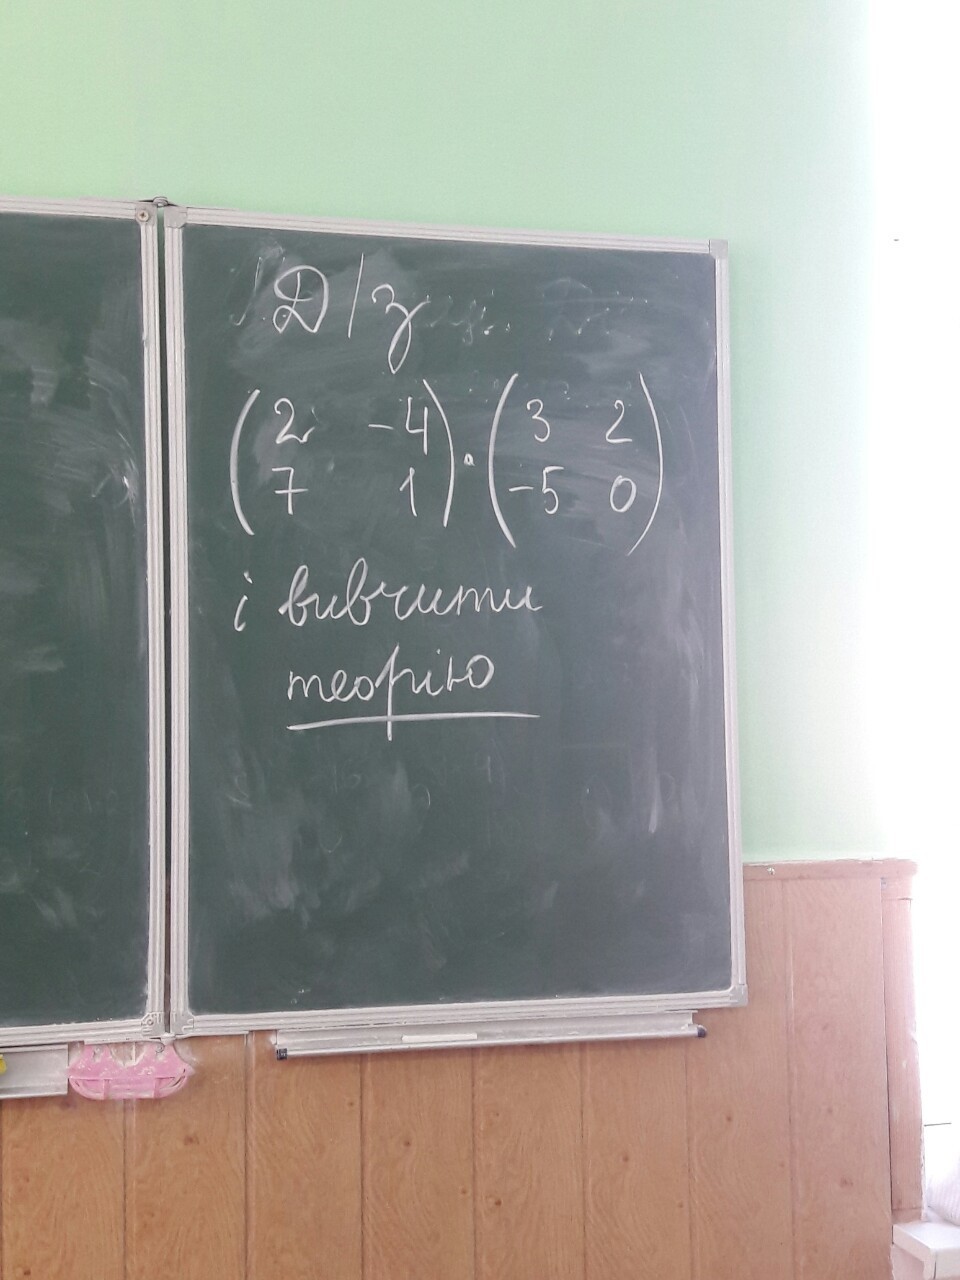 Д/з
(2 -4) · (3 2)
(7 1) (-5 0)
і вивчити
теорію